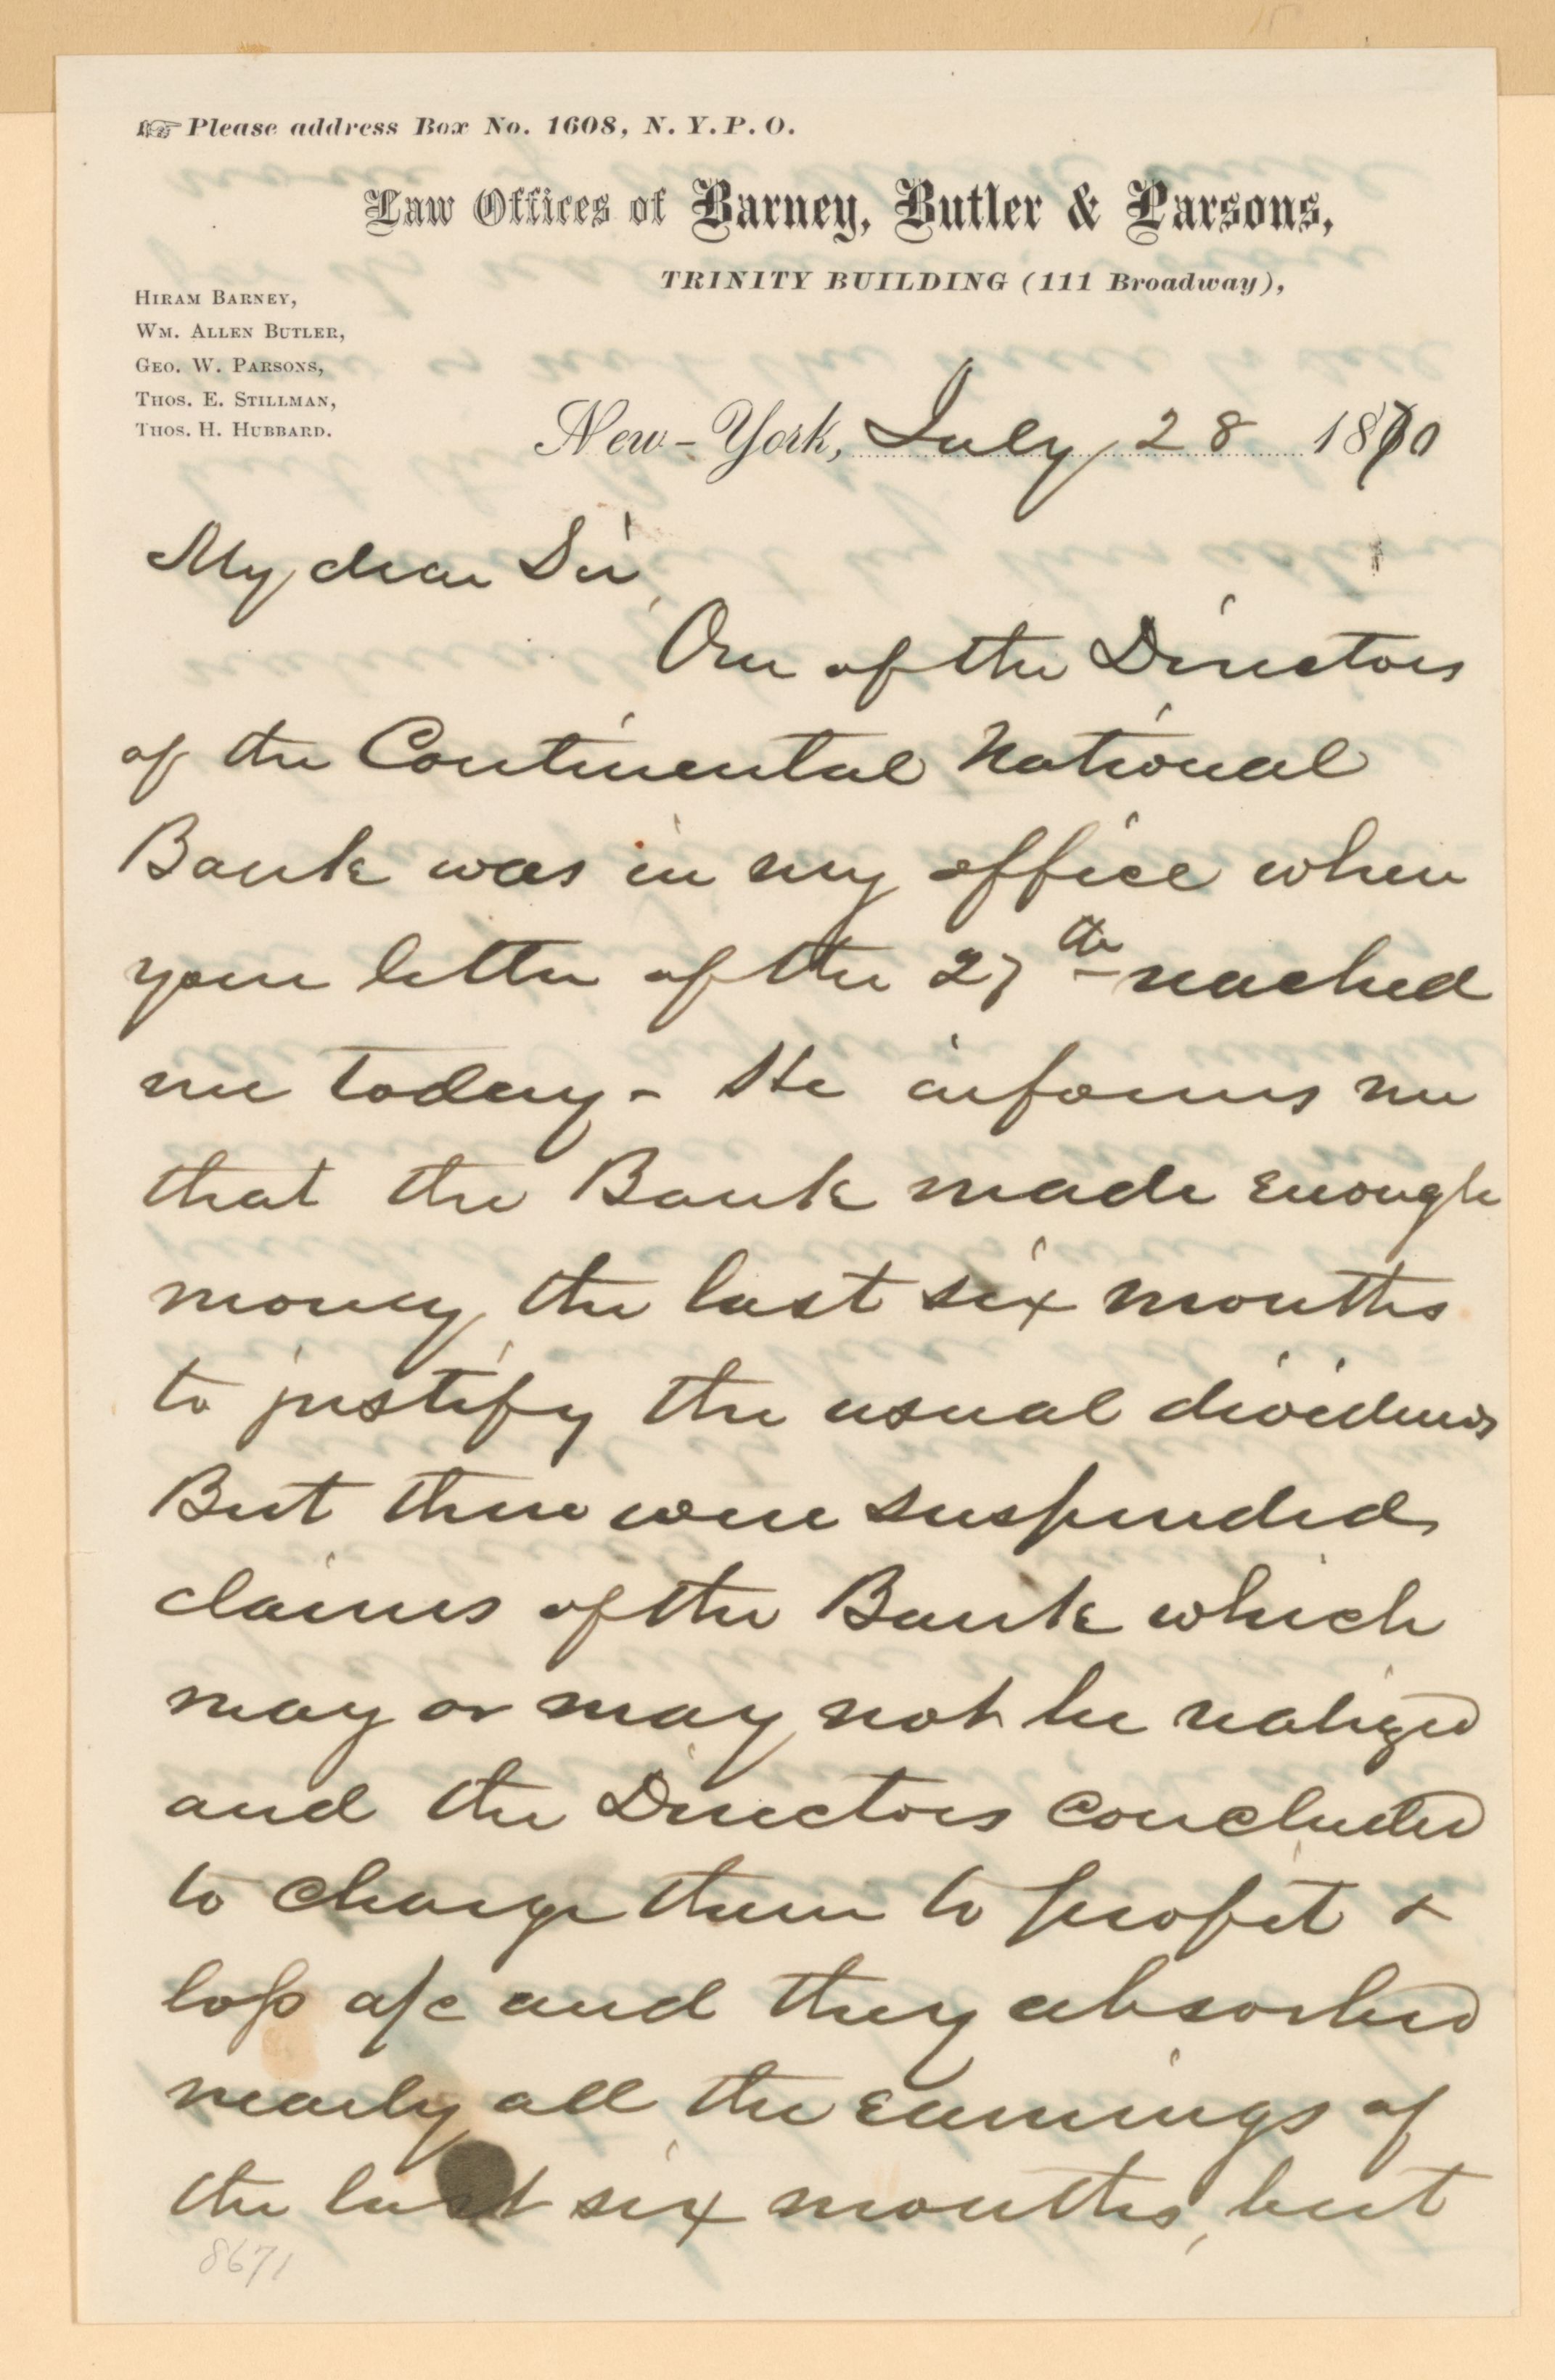 ☞ Please address Box No. 1608, N. Y. P. O.
Law Offices of Barney, Butler & Parsons,
TRINITY BUILDING (111 Broadway),
HIRAM BARNEY,
WM. ALLEN BUTLER,
GEO. W. PARSONS,
THOS. E. STILLMAN,
THOS. H. HUBBARD.
New-York, July 28 1870
My dear Sir,
One of the Directors
of the Continental National
Bank was in my office when
your letter of the 27th reached
me today - He informs me
that the Bank made enough
money the last six months
to justify the usual dividends
But there were suspended
claims of the Bank which
may or may not be realized
and the Directors concluded
to charge them to profit &
loss a/c and they absorbed
nearly all the earnings of
the last six months, but
8671